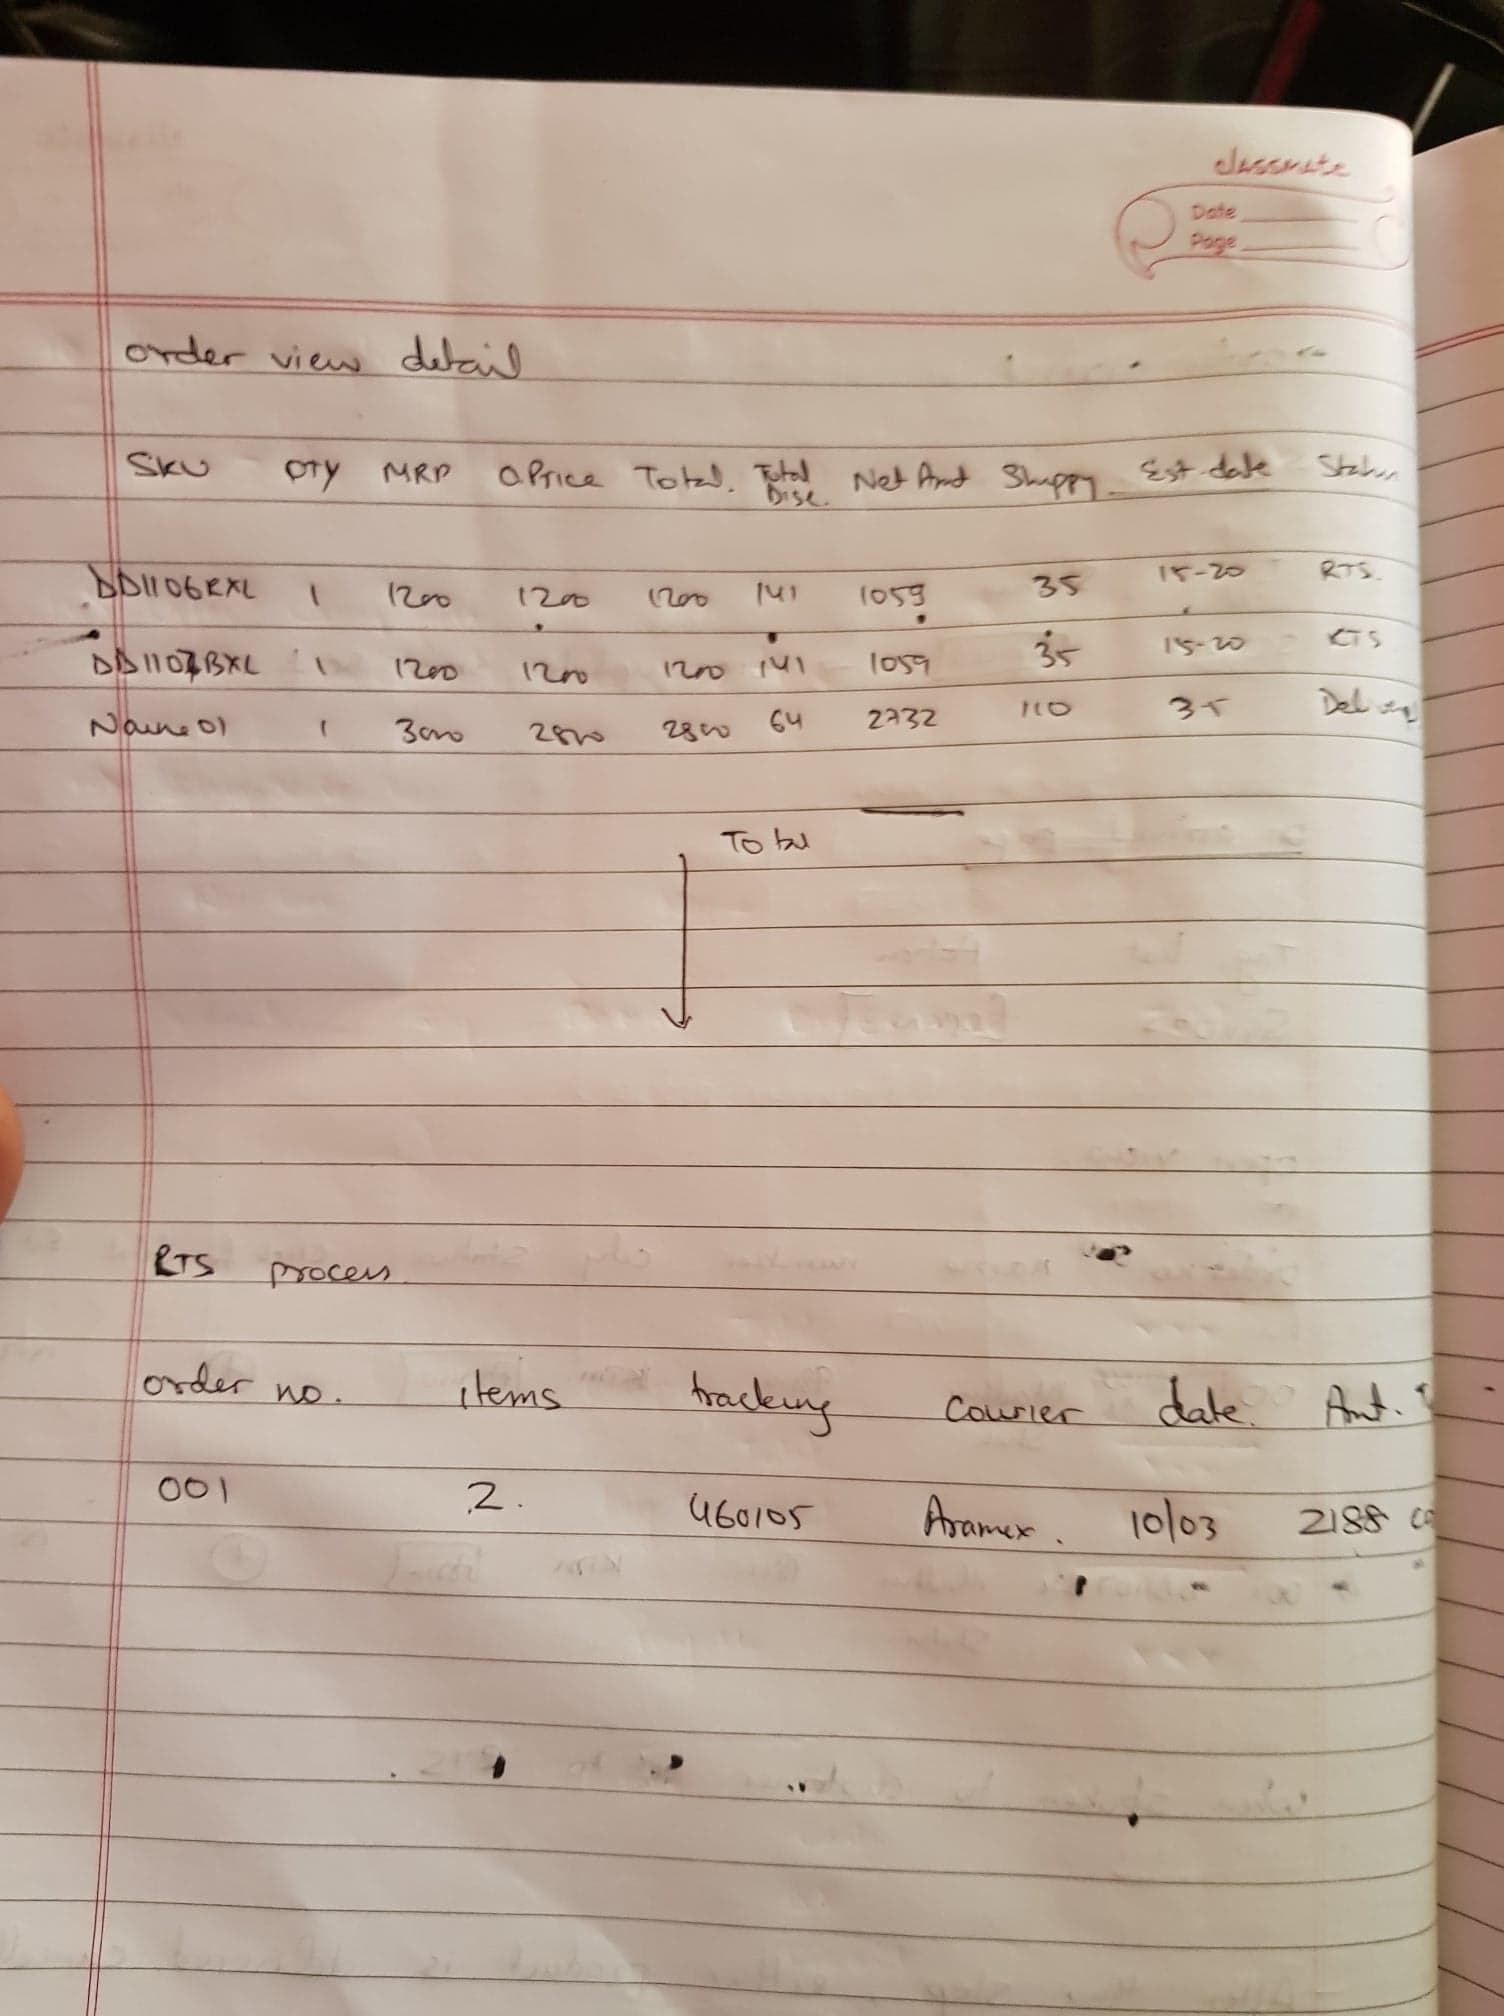 classmate
Date
Page
order view detail
SKU QTY MRP O.Price Total. Total Disc. Net Amt Shippg Est date Status
DD1106RXL 1 1200 1200 1200 141 1059 35 15-20 RTS.
DD1107BXL 1 1200 1200 1200 141 1059 35 15-20 RTS
01 1 3000 2800 2800 64 2732 110 35
Total
RTS process
order no. items tracking courier date. Amt.
001 2. 460105 Aramex. 10/03 2188